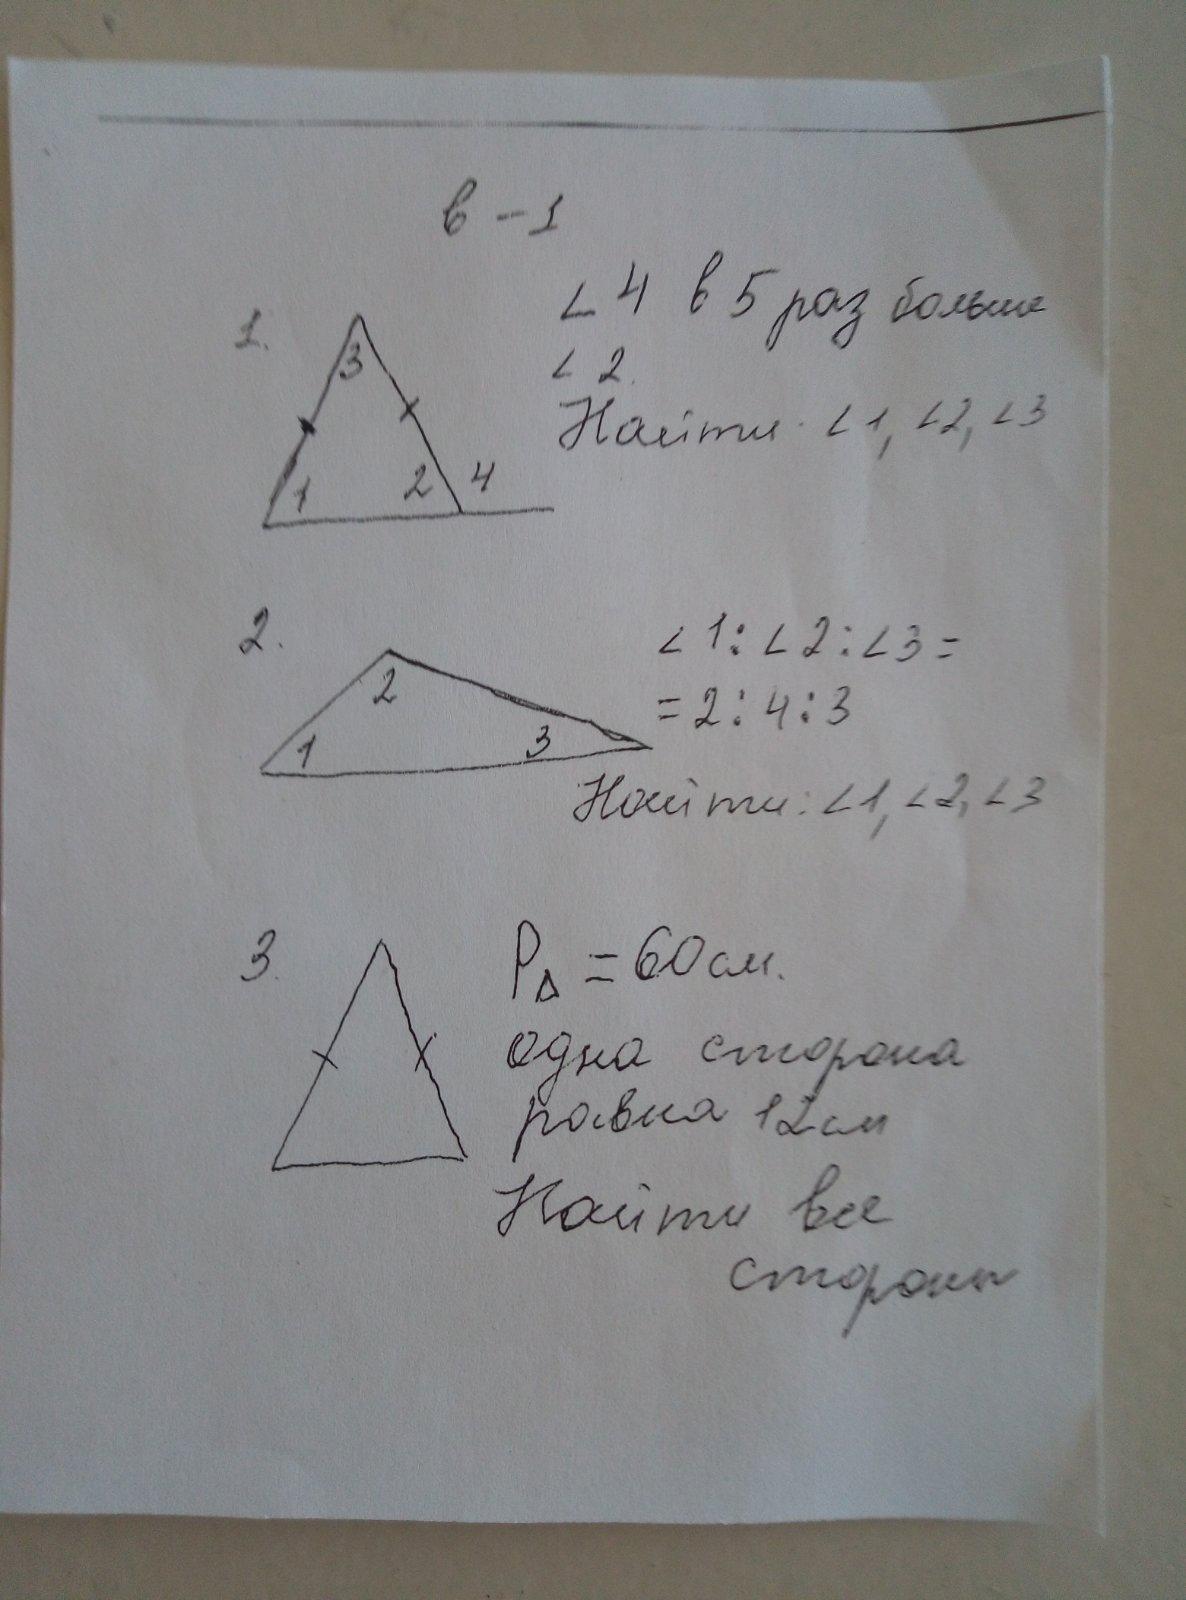 в-1
1.
∠4 в 5 раз больше
∠2.
3
Найти: ∠1, ∠2, ∠3
1 2 4
2.
∠1:∠2:∠3=
2
=2:4:3
1 3
Найти: ∠1, ∠2, ∠3
3.
P∆ = 60см.
одна сторона
равна 12см
Найти все
стороны